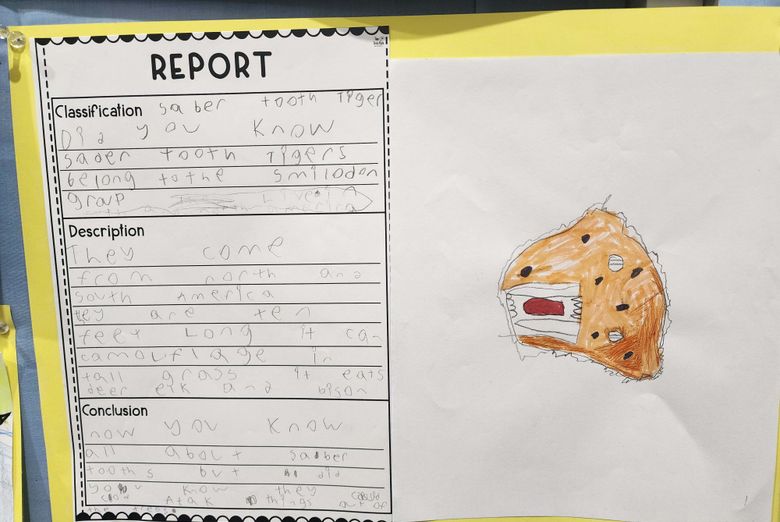 REPORT
Classification saber tooth Tiger
Did you know
saber tooth Tigers
belong to the smilodon
group
Description
They come
from north and
south America
tey are ten
feet Long it can
camouflage in
tall grass it eats
deer elk and bison
Conclusion
now you know
all about saber
tooths but did
you know they
Atak things out of
the